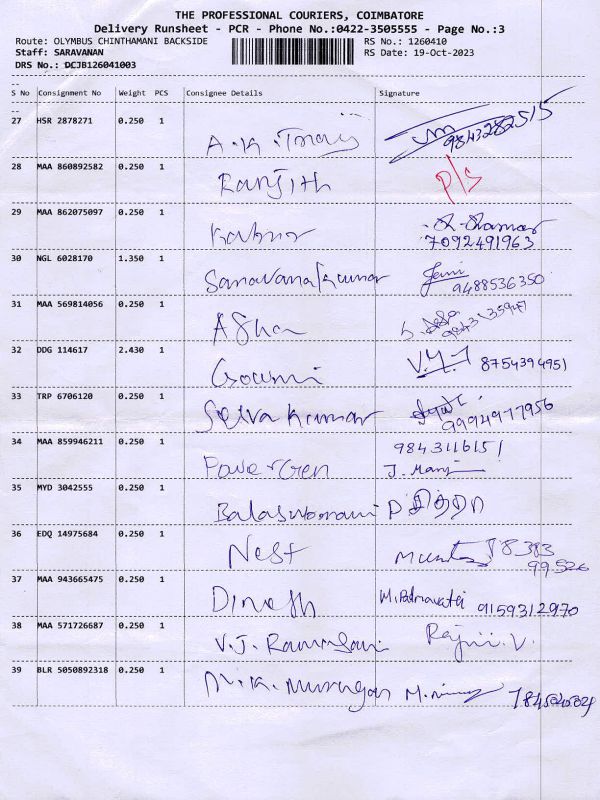 THE PROFESSIONAL COURIERS, COIMBATORE
Delivery Runsheet - PCR - Phone No.:0422-3505555 - Page No.:3
Route: OLYMBUS CHINTHAMANI BACKSIDE RS No.: 1260410
Staff: SARAVANAN RS Date: 19-Oct-2023
DRS No.: DCJB126041003
S No Consignment No Weight PCS Consignee Details Signature
27 HSR 2878271 0.250 1 A.K. 9843282515
28 MAA 860892582 0.250 1 Ranjith P/S
29 MAA 862075097 0.250 1
7092491963
30 NGL 6028170 1.350 1 Saravanakumar
9488536350
31 MAA 569814056 0.250 1 Asha
32 DDG 114617 2.430 1 Gowmi 8754394951
33 TRP 6706120 0.250 1 Selvakumar
9994977956
34 MAA 859946211 0.250 1 PowerGen 9843116151
35 MYD 3042555 0.250 1
36 EDQ 14975684 0.250 1 Nest
99526
37 MAA 943665475 0.250 1 Dinesh M. Padmavathi 9159312970
38 MAA 571726687 0.250 1 V.J. V.
39 BLR 5050892318 0.250 1 Murugan